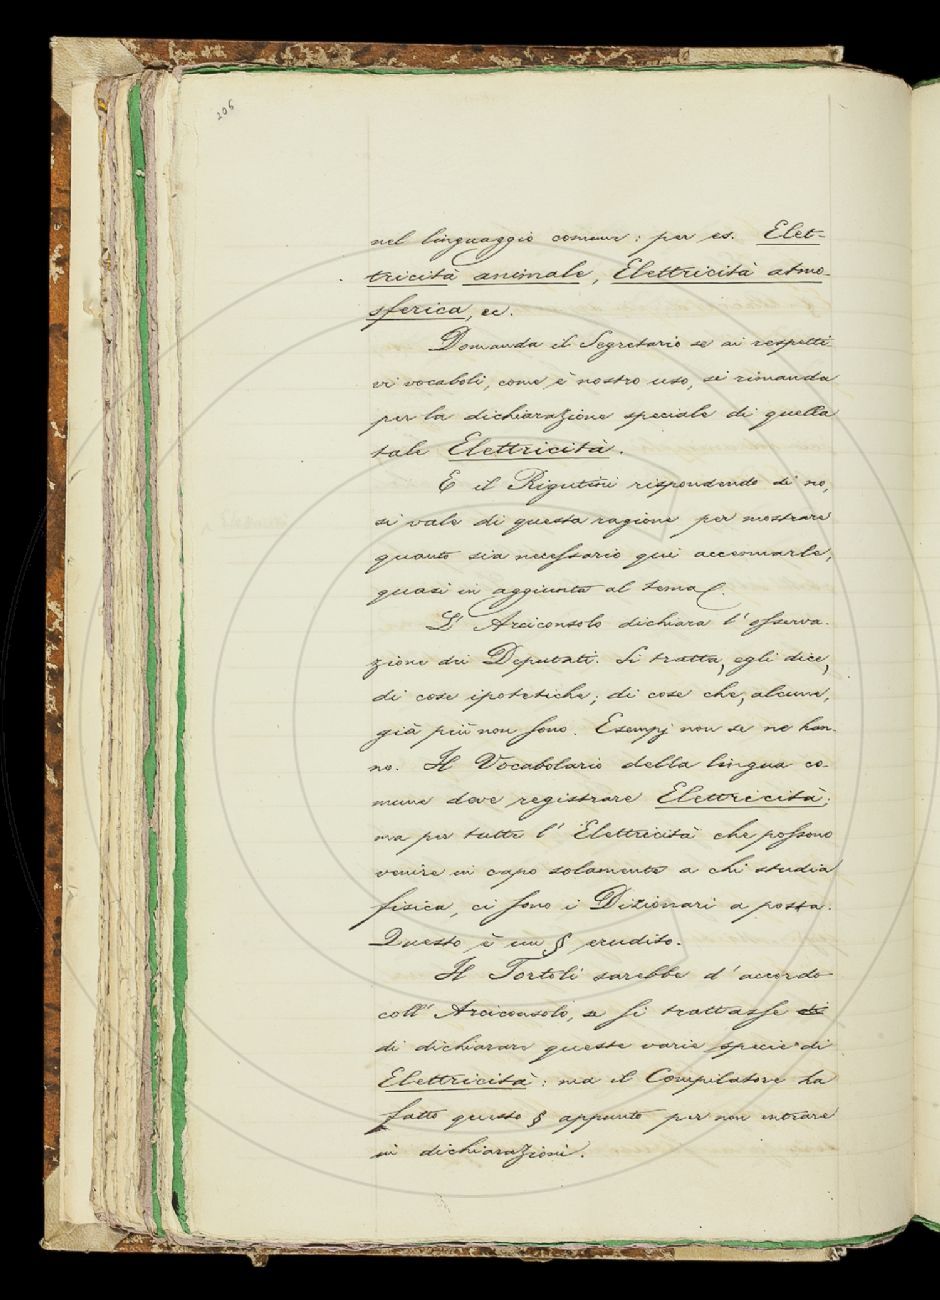 206
nel linguaggio comune: per es. Elet-
tricità animale, Elettricità atmo-
sferica, ec.
Domanda il Segretario se ai respetti
vi vocaboli, come è nostro uso, si rimanda
per la dichiarazione speciale di quella
tale Elettricità.
E il Rigutini rispondendo di no,
si vale di questa ragione per mostrare
quanto sia necessario qui accennarle,
quasi in aggiunta al tema.
L'Arciconsolo dichiara l'osserva-
zione dei Deputati. Si tratta, egli dice,
di cose ipotetiche; di cose che, alcune,
già più non sono. Esempj non se ne han-
no. Il Vocabolario della lingua co-
mune deve registrare Elettricità;
ma per tutte l'Elettricità che possono
venire in capo solamente a chi studia
fisica, ci sono i Dizionari a posta.
Questo è un § erudito.
Il Tortoli sarebbe d'accordo
coll'Arciconsolo, se si trattasse di
di dichiarare queste varie specie di
Elettricità: ma il Compilatore ha
fatto questo § appunto per non entrare
in dichiarazioni.